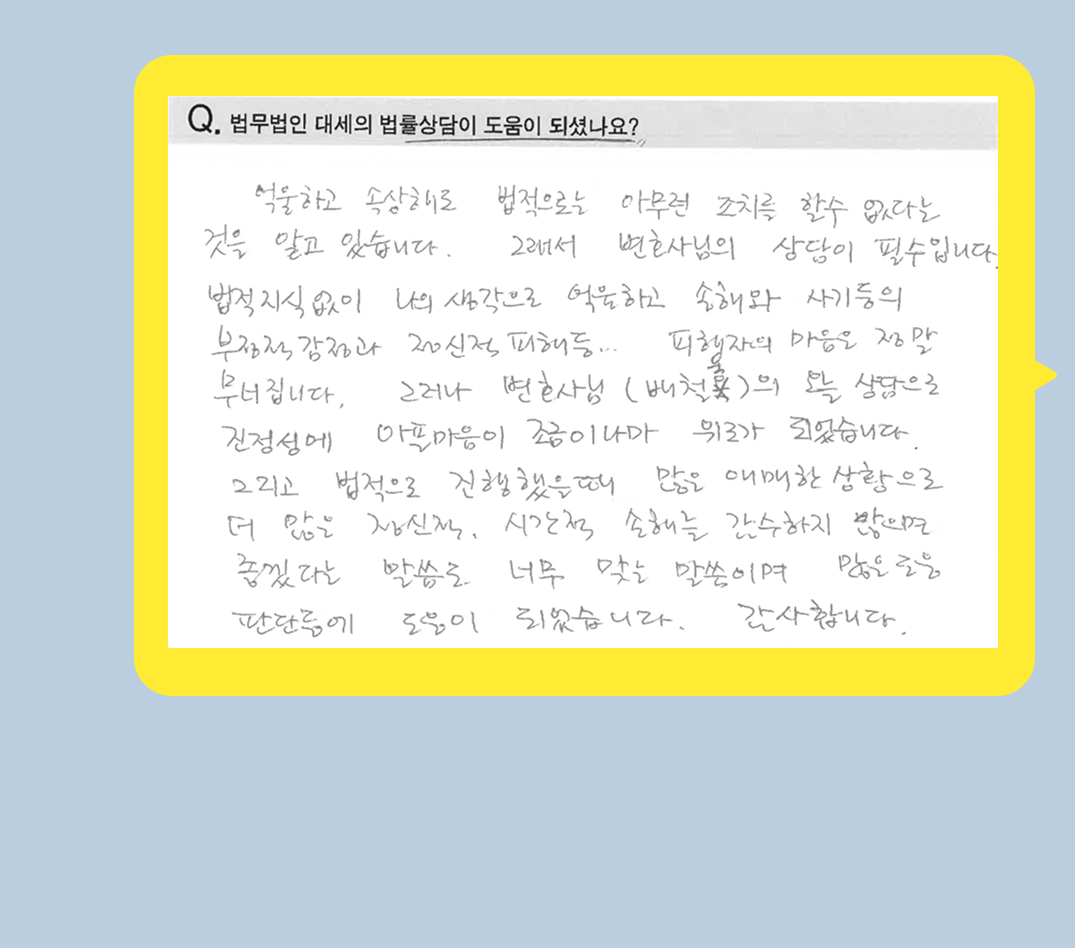 Q. 법무법인 대세의 법률상담이 도움이 되셨나요?
억울하고 속상해도 법적으로는 아무런 조치를 할수 없다는
것을 알고 있습니다. 그래서 변호사님의 상담이 필수입니다.
법적지식 없이 나의 생각으로 억울하고 손해와 사기등의
부정적 감정과 정신적 피해등... 피해자의 마음은 정말
무너집니다. 그러나 변호사님 (배철욱)의 오늘 상담으로
진정성에 아픈마음이 조금이나마 위로가 되었습니다.
그리고 법적으로 진행했을때 많은 애매한 상황으로
더 많은 정신적, 시간적 손해를 감수하지 않으면
좋겠다는 말씀도 너무 맞는 말씀이며 많은 도움
판단등에 도움이 되었습니다. 감사합니다.